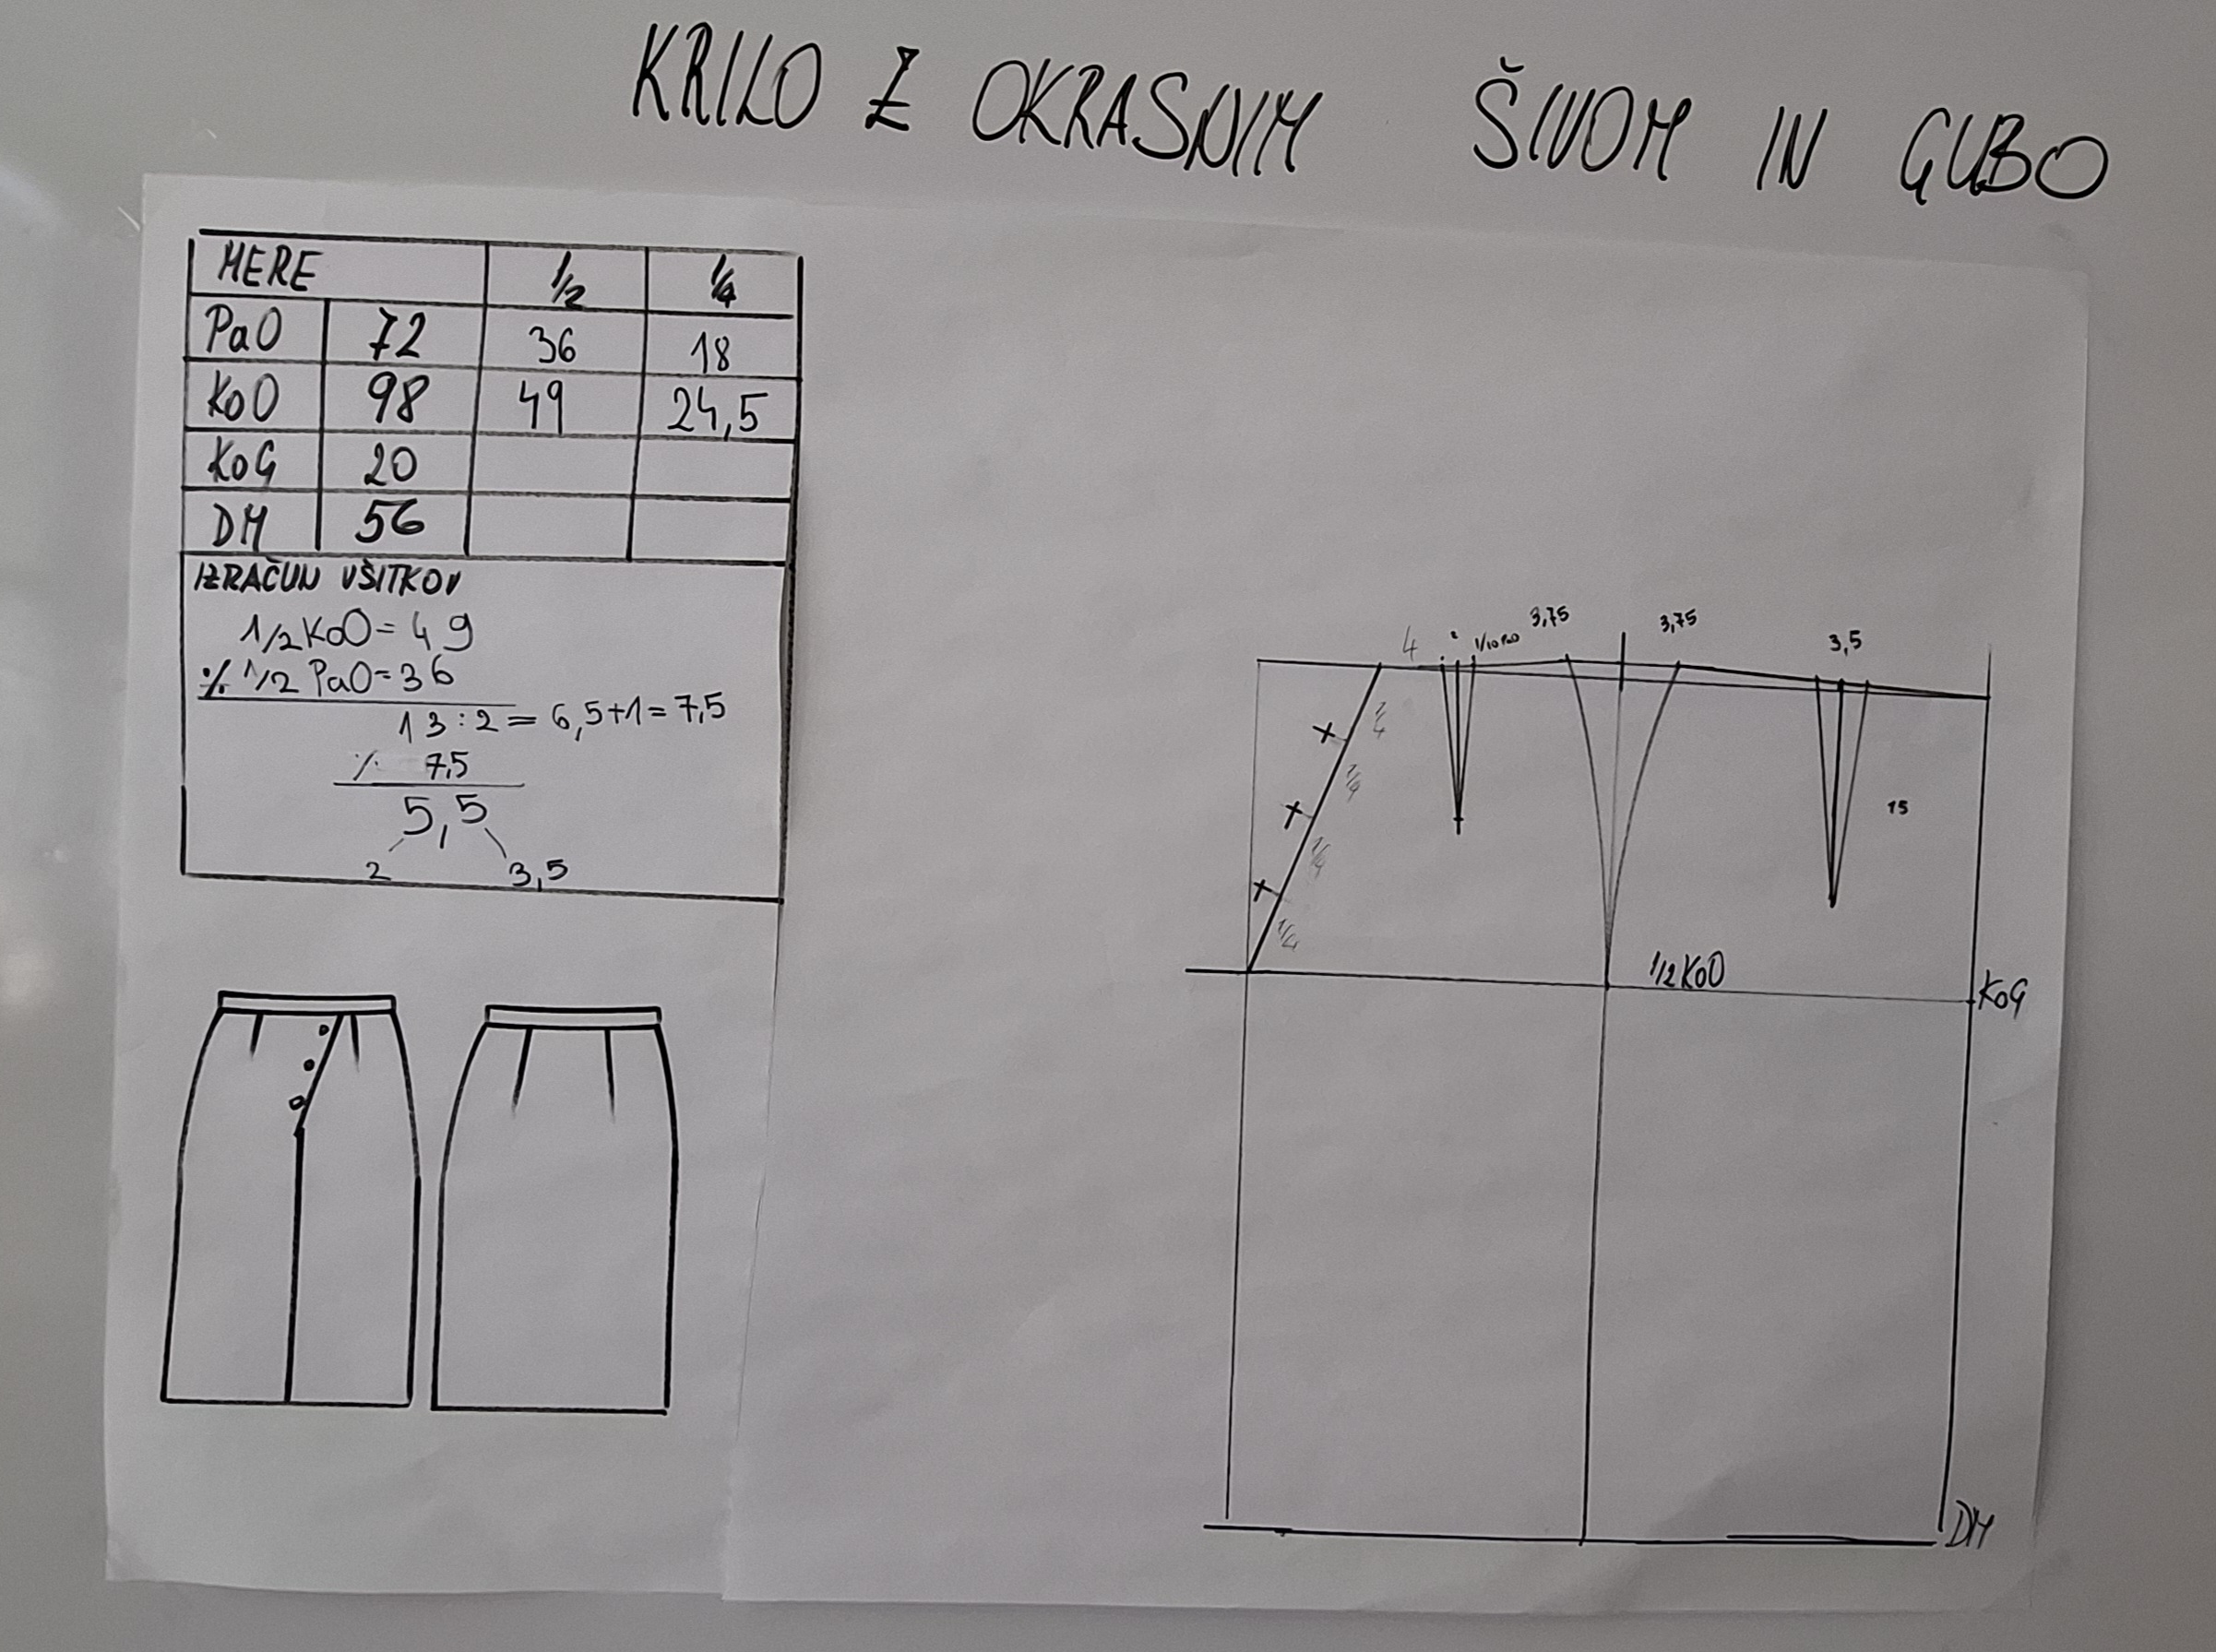 KRILO Z OKRASNIM ŠIVOM IN GUBO
MERE 1/2 1/4
PaO 72 36 18
KoO 98 49 24,5
KoG 20
DM 56
IZRAČUN VŠITKOV
1/2 KoO = 49
% 1/2 PaO = 36
13 : 2 = 6,5 + 1 = 7,5
% 7,5
5,5
2 3,5
4 2 3,75 3,75 3,5
1/4
1/4
1/4
1/4
15
1/2 KoO
KoG
DM